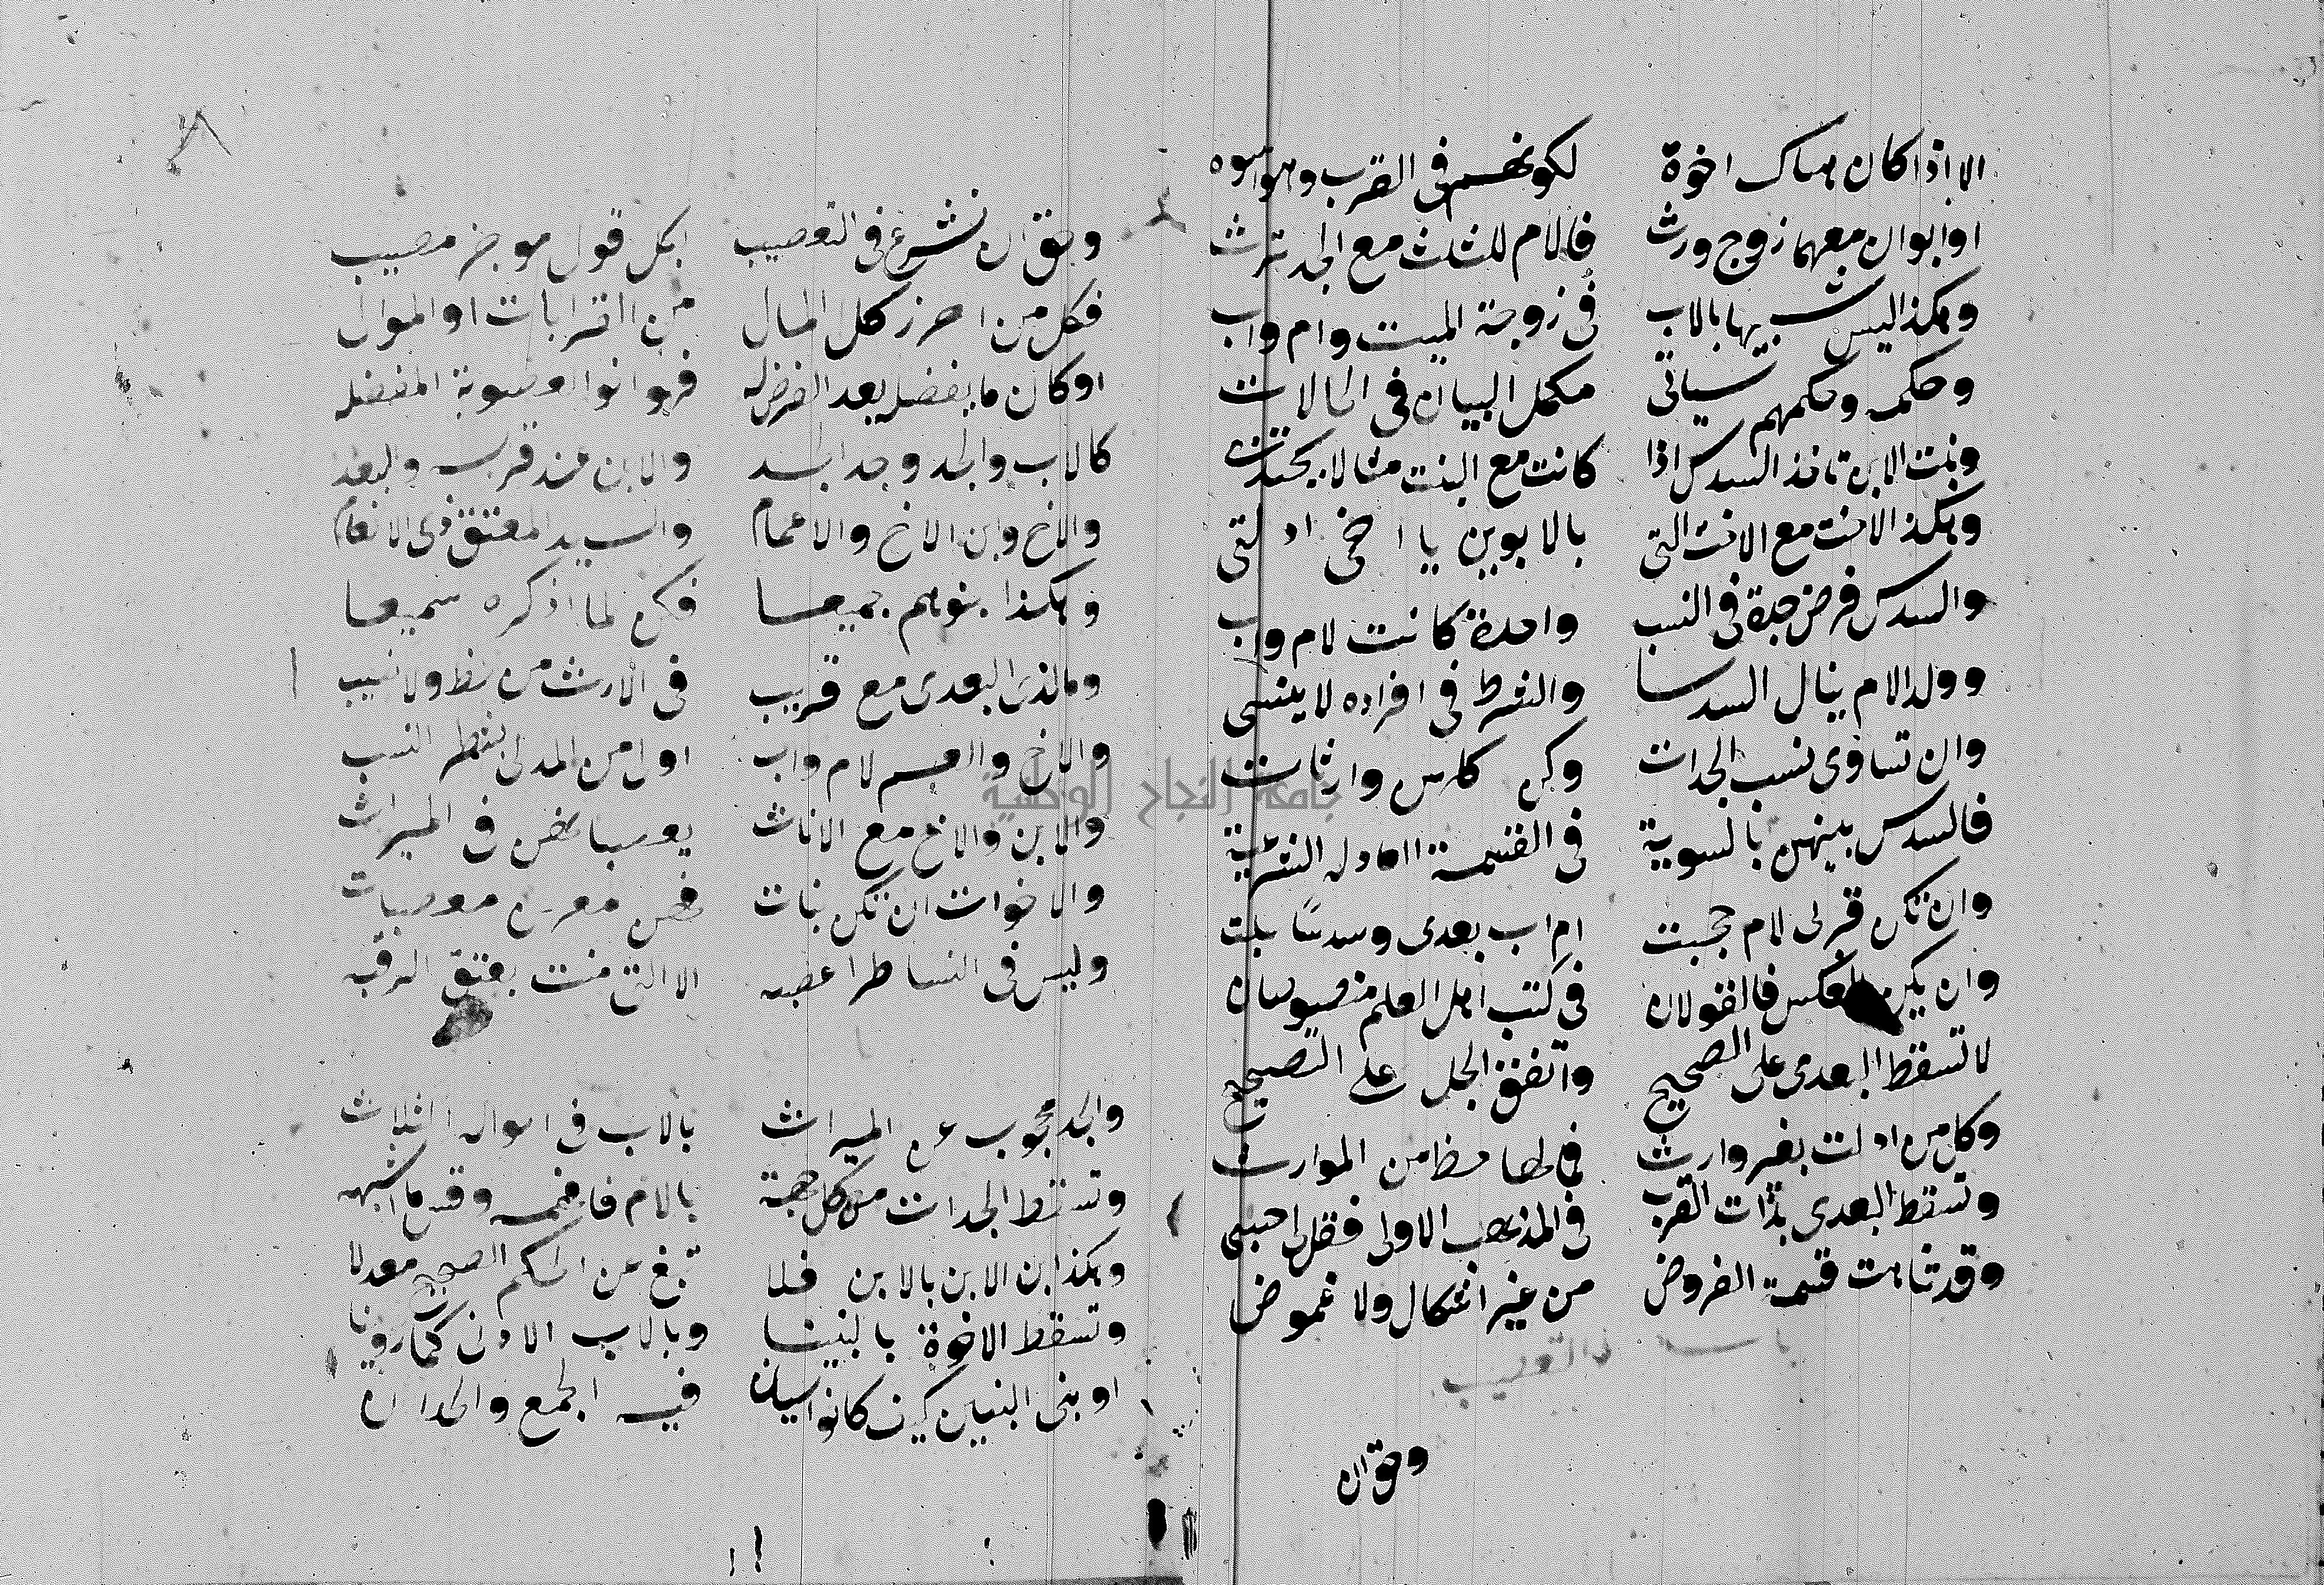 الا اذا كان هناك اخوة لكونهم فى القرب وهو اسوه
او ابوان معهما زوج ورث فالام للثلث مع الجد ترث
وهكذا ليس شبيها بالاب فى زوجة الميت وام واب
وحكمه وحكمهم سياتى مكمل البيان فى الحالات
وبنت الابن تاخذ السدس اذا كانت مع البنت مثالا يحتذى
وهكذا الاخت مع الاخت التى بالابوين يا اخى ادلتى
والسدس فرض جدة فى النسب واحدة كانت لام واب
وولد الام ينال السدسا والشرط فى افراده لا ينسى
وان تساوى نسب الجدات وكن كلهن وارثات
فالسدس بينهن بالسوية فى القسمة العادله الشرعية
وان تكن قربى لام حجبت ام اب بعدى وسدسًا سلبت
وان يكن بالعكس فالقولان فى كتب اهل العلم منصوصان
لا تسقط البعدى على الصحيح واتفق الجل على التصحيح
وكل من ادلت بغير وارث فما لها حظ من الموارث
وتسقط البعدى بذات القرب فى المذهب الاولى فقل لى حسبى
وقد تناهت قسمة الفروض من غير اشكال ولا غموض
باب التعصيب
وحق ان
وحق ان نشرع فى التعصيب بكل قول موجز مصيب
فكل من احرز كل المال من القرابات او الموالى
او كان ما يفضل بعد الفرض له فهو اخو العصوبة المفضله
كالاب والجد وجد الجد والابن عند قربه والبعد
والاخ وابن الاخ والاعمام والسيد المعتق ذى الانعام
وهكذا بنوهم جميعا فكن لما اذكره سميعا
وما لذى البعدى مع قريب فى الارث من حظ ولا نصيب
والاخ والعم لام واب اولى من المدلى بشطر النسب
والابن والاخ مع الاناث يعصبانهن فى الميراث
والاخوات ان تكن بنات فهن معهن معصبات
وليس فى النسا طرا عصبه الا التى منت بعتق الرقبه
والجد محجوب عن الميراث بالاب فى احواله الثلاث
وتسقط الجدات من كل جهة بالام فافهمه وقس ما اشبهه
وهكذا ابن الابن بالابن فلا تبغ عن الحكم الصحيح معدلا
وتسقط الاخوة بالبنينا وبالاب الادنى كما روينا
او ببنى البنين كيف كانوا سيان فيه الجمع والوحدان
جامعة النجاح الوطنية